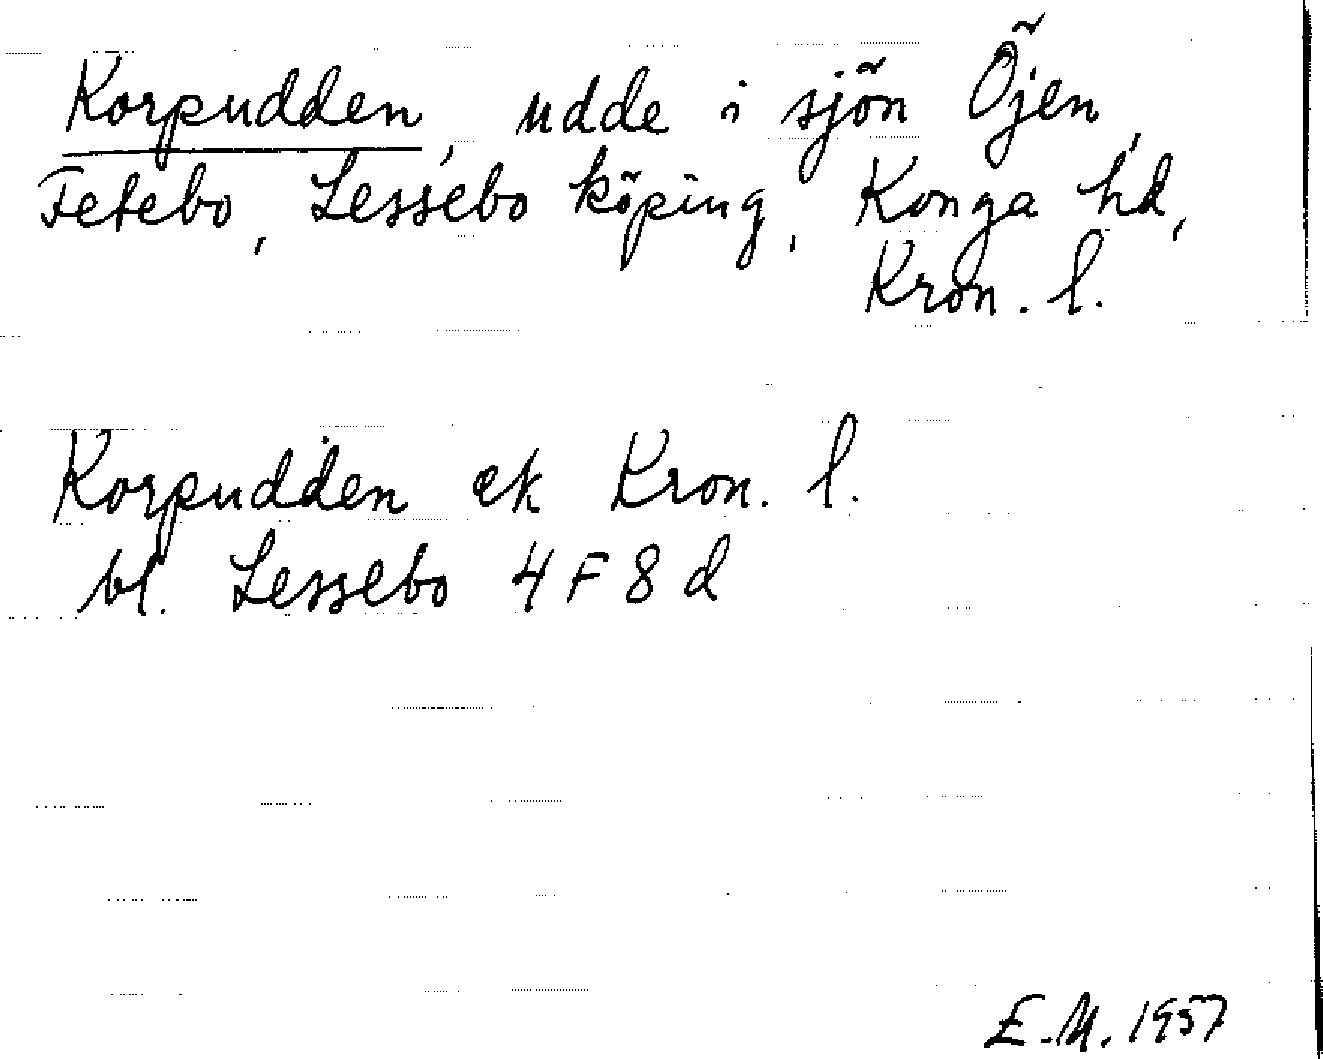 Korpudden, udde i sjön Öjen,
Fetebo, Lessebo köping, Konga hd,
Kron. l.
Korpudden ek Kron. l.
bl. Lessebo 4 F 8 d
E.M. 1957